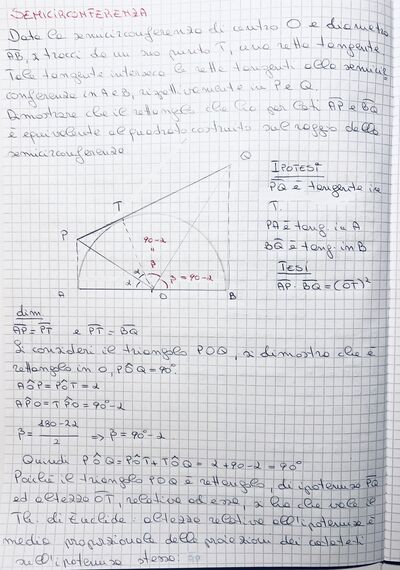 SEMICIRCONFERENZA
Data la semicirconferenza di centro O e diametro
AB, si tracci da un suo punto T, una retta tangente.
Tale tangente interseca le rette tangenti alla semicir
conferenza in A e B, rispettivamente in P e Q.
Dimostrare che il rettangolo che ha per lati AP e BQ
è equivalente al quadrato costruito sul raggio della
semicirconferenza
Q
T
P
90-α
β
α
α
β = 90-α
A
O
B
IPOTESI
PQ è tangente in
T.
PA è tang. in A
BQ è tang. in B
TESI
AP · BQ = (OT)²
dim
AP = PT e PT = BQ
Si consideri il triangolo POQ, si dimostra che è
rettangolo in O, PÔQ = 90°.
AÔP = PÔT = α
APO = TPO = 90°-α
β = 180-2α / 2 => β = 90°-α
Quindi PÔQ = PÔT + TÔQ = α + 90 - α = 90°
Poiché il triangolo POQ è rettangolo, di ipotenusa PQ
ed altezza OT, relativa ad essa, si ha che vale il
Th. di Euclide: altezza relativa all'ipotenusa è
media proporzionale delle proiezioni dei cateti
sull'ipotenusa stessa: